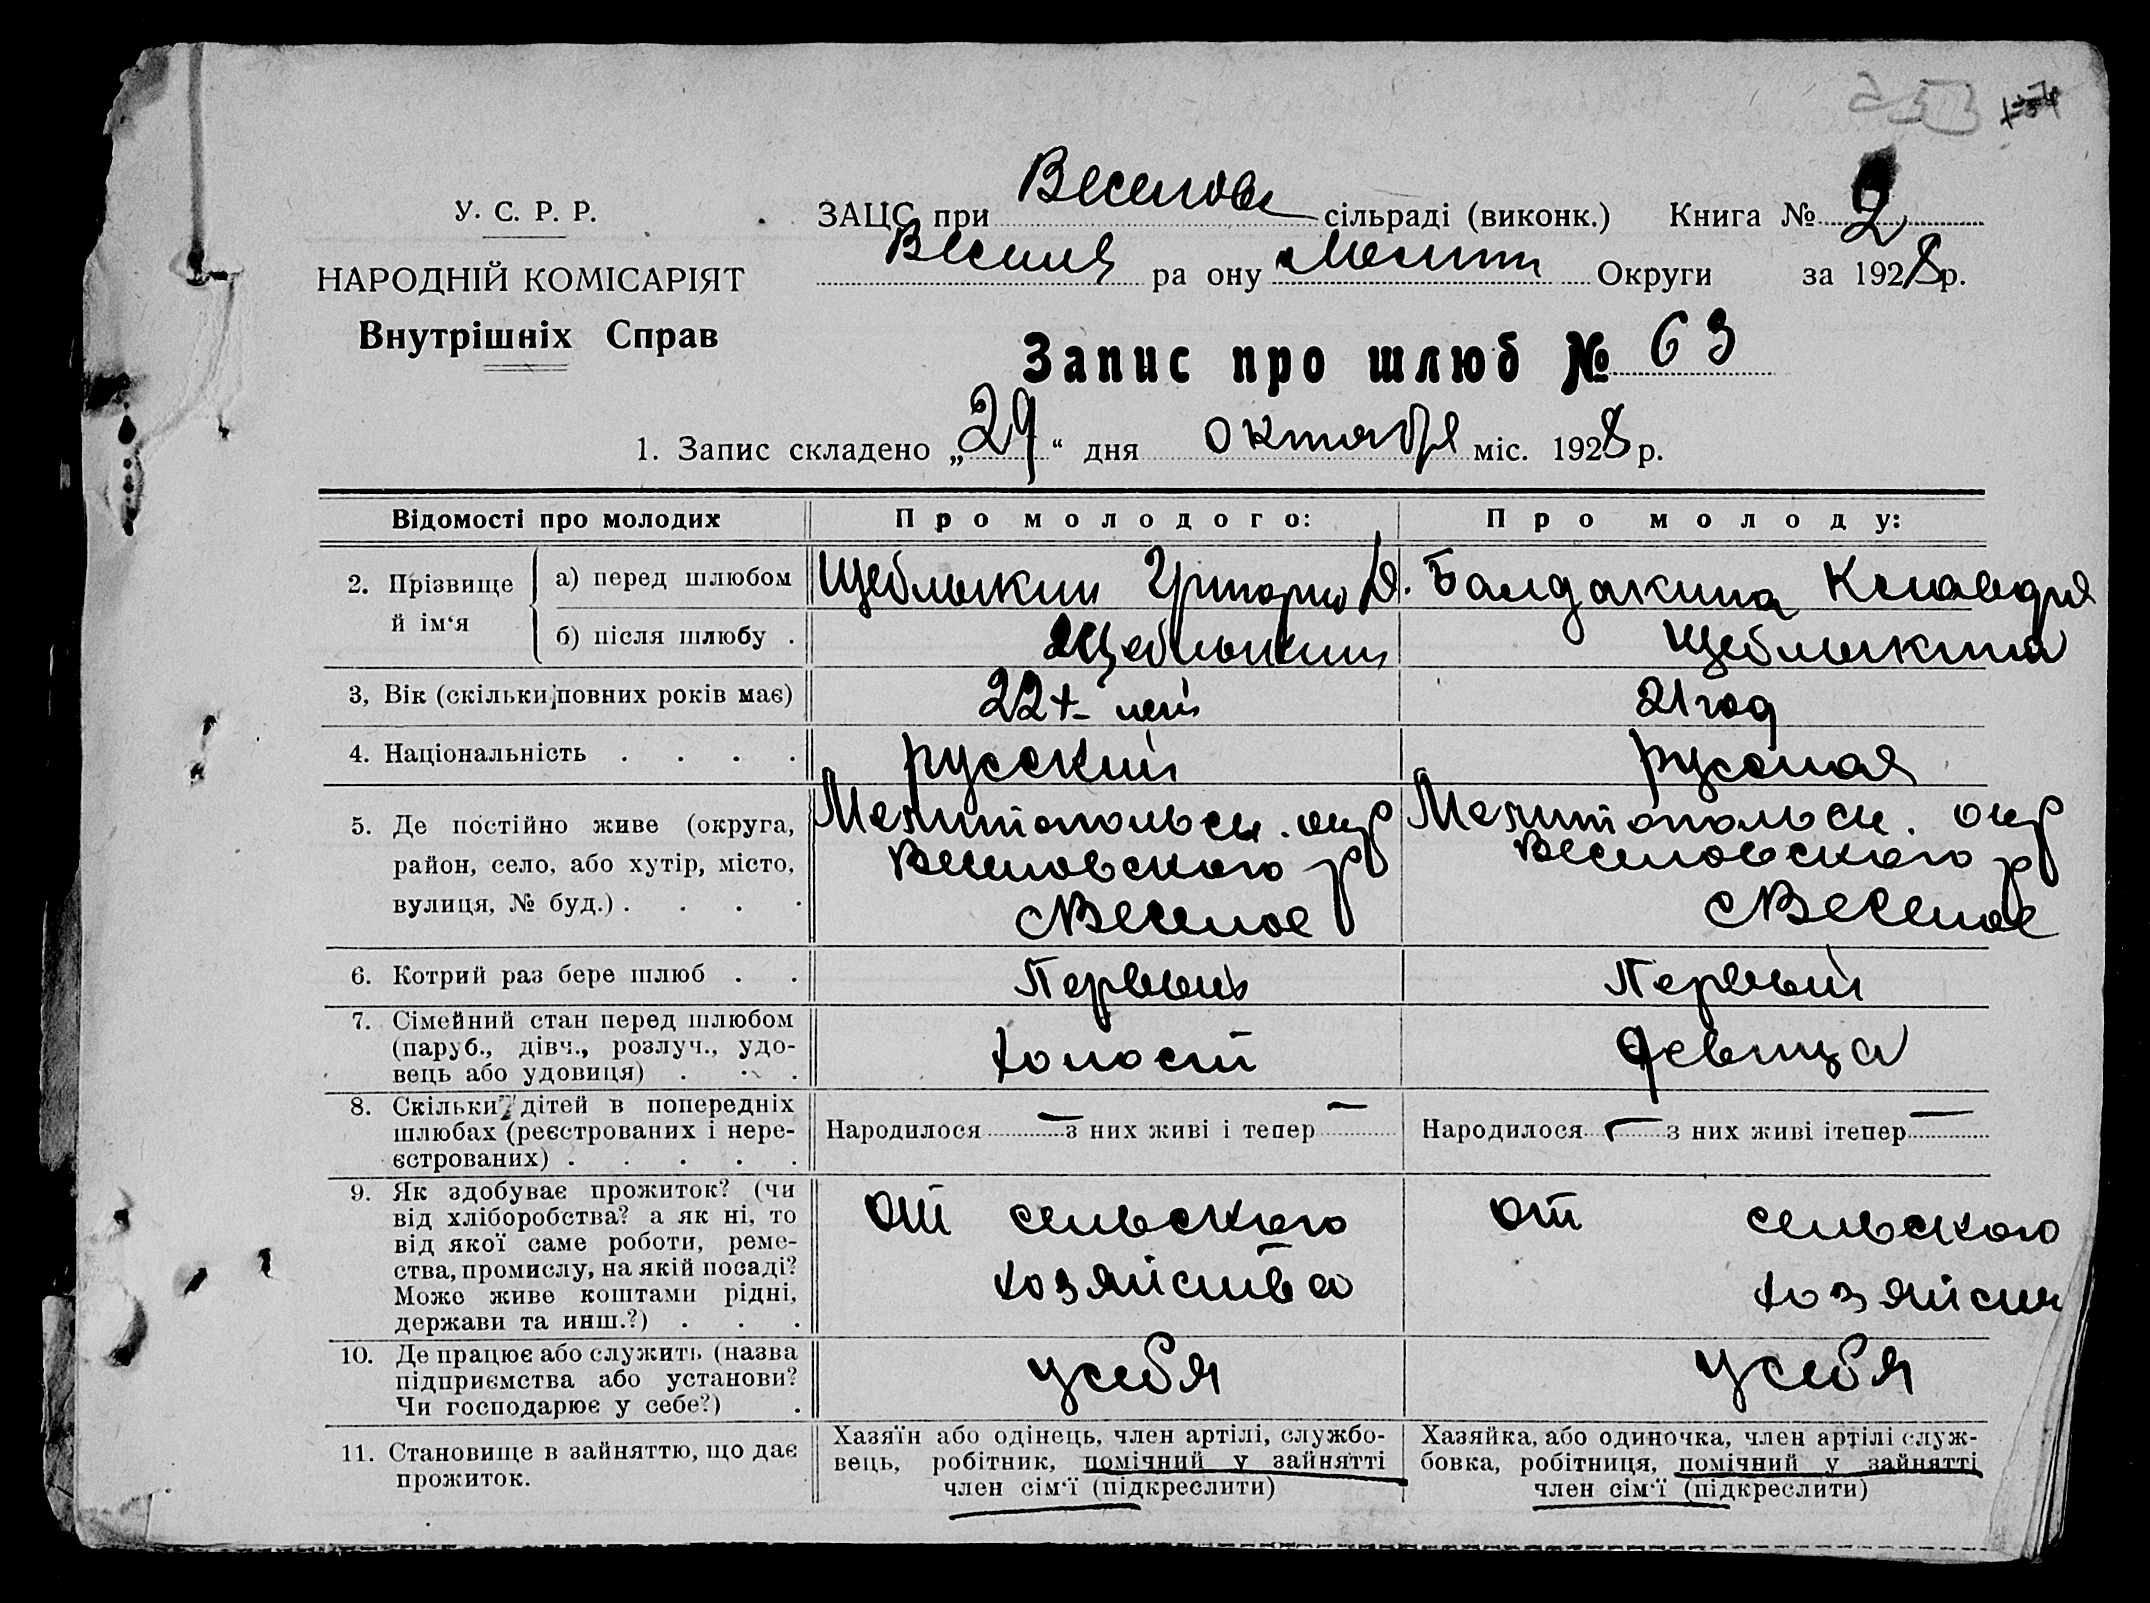 У. С. Р. Р.
НАРОДНІЙ КОМІСАРІЯТ
Внутрішніх Справ
ЗАЦС при Веселов сільраді (виконк.) Книга № 2
Весел ра ону Мелит Округи за 1928 р.
Запис про шлюб № 63
1. Запис складено „29“ дня октября міс. 1928 р.
Відомості про молодих Про молодого: Про молоду:
2. Прізвище й ім‘я
а) перед шлюбом Щеблыкин Григорий Д. Балдакина Клавдия
б) після шлюбу . Щеблыкин Щеблыкина
3, Вік (скільки повних років має) 22 лет 21 год
4. Національність . . . . русский русская
5. Де постійно живе (округа, Мелитопольск. окр Мелитопольск. окр
район, село, або хутір, місто, Веселовского р Веселовского р
вулиця, № буд.) . . . . с Веселое с Веселое
6. Котрий раз бере шлюб . . Первый Первый
7. Сімейний стан перед шлюбом
(паруб., дівч., розлуч., удо- холост девица
вець або удовиця) . . .
8. Скільки дітей в попередніх
шлюбах (реєстрованих і нере- Народилося — з них живі і тепер — Народилося — з них живі ітепер —
єстрованих) . . . . .
9. Як здобуває прожиток? (чи
від хліборобства? а як ні, то от сельского от сельского
від якої саме роботи, реме-
ства, промислу, на якій посаді? хозяйства хозяйств
Може живе коштами рідні,
держави та инш.?) . . .
10. Де працює або служить (назва
підприємства або установи? у себя у себя
Чи господарює у себе?) .
11. Становище в зайняттю, що дає
прожиток.
Хазяїн або одінець, член артілі, службо-
вець, робітник, помічний у зайнятті
член сім‘ї (підкреслити)
Хазяйка, або одиночка, член артілі служ-
бовка, робітниця, помічний у зайнятті
член сім‘ї (підкреслити)